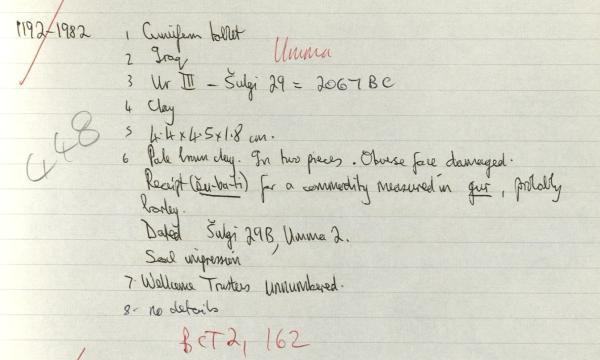 1192-1982
1 Cuneiform tablet
2 Iraq Umma
3 Ur III - Šulgi 29 = 2067 BC
4 Clay
5 4.4 x 4.5 x 1.8 cm.
6 Pale brown clay. In two pieces. Obverse face damaged.
Receipt (šu-ba-ti) for a commodity measured in gur, probably
barley.
Dated Šulgi 29B, Umma 2.
Seal impression
7. Wellcome Trustees Unnumbered.
8- no details
448
BCT2, 162